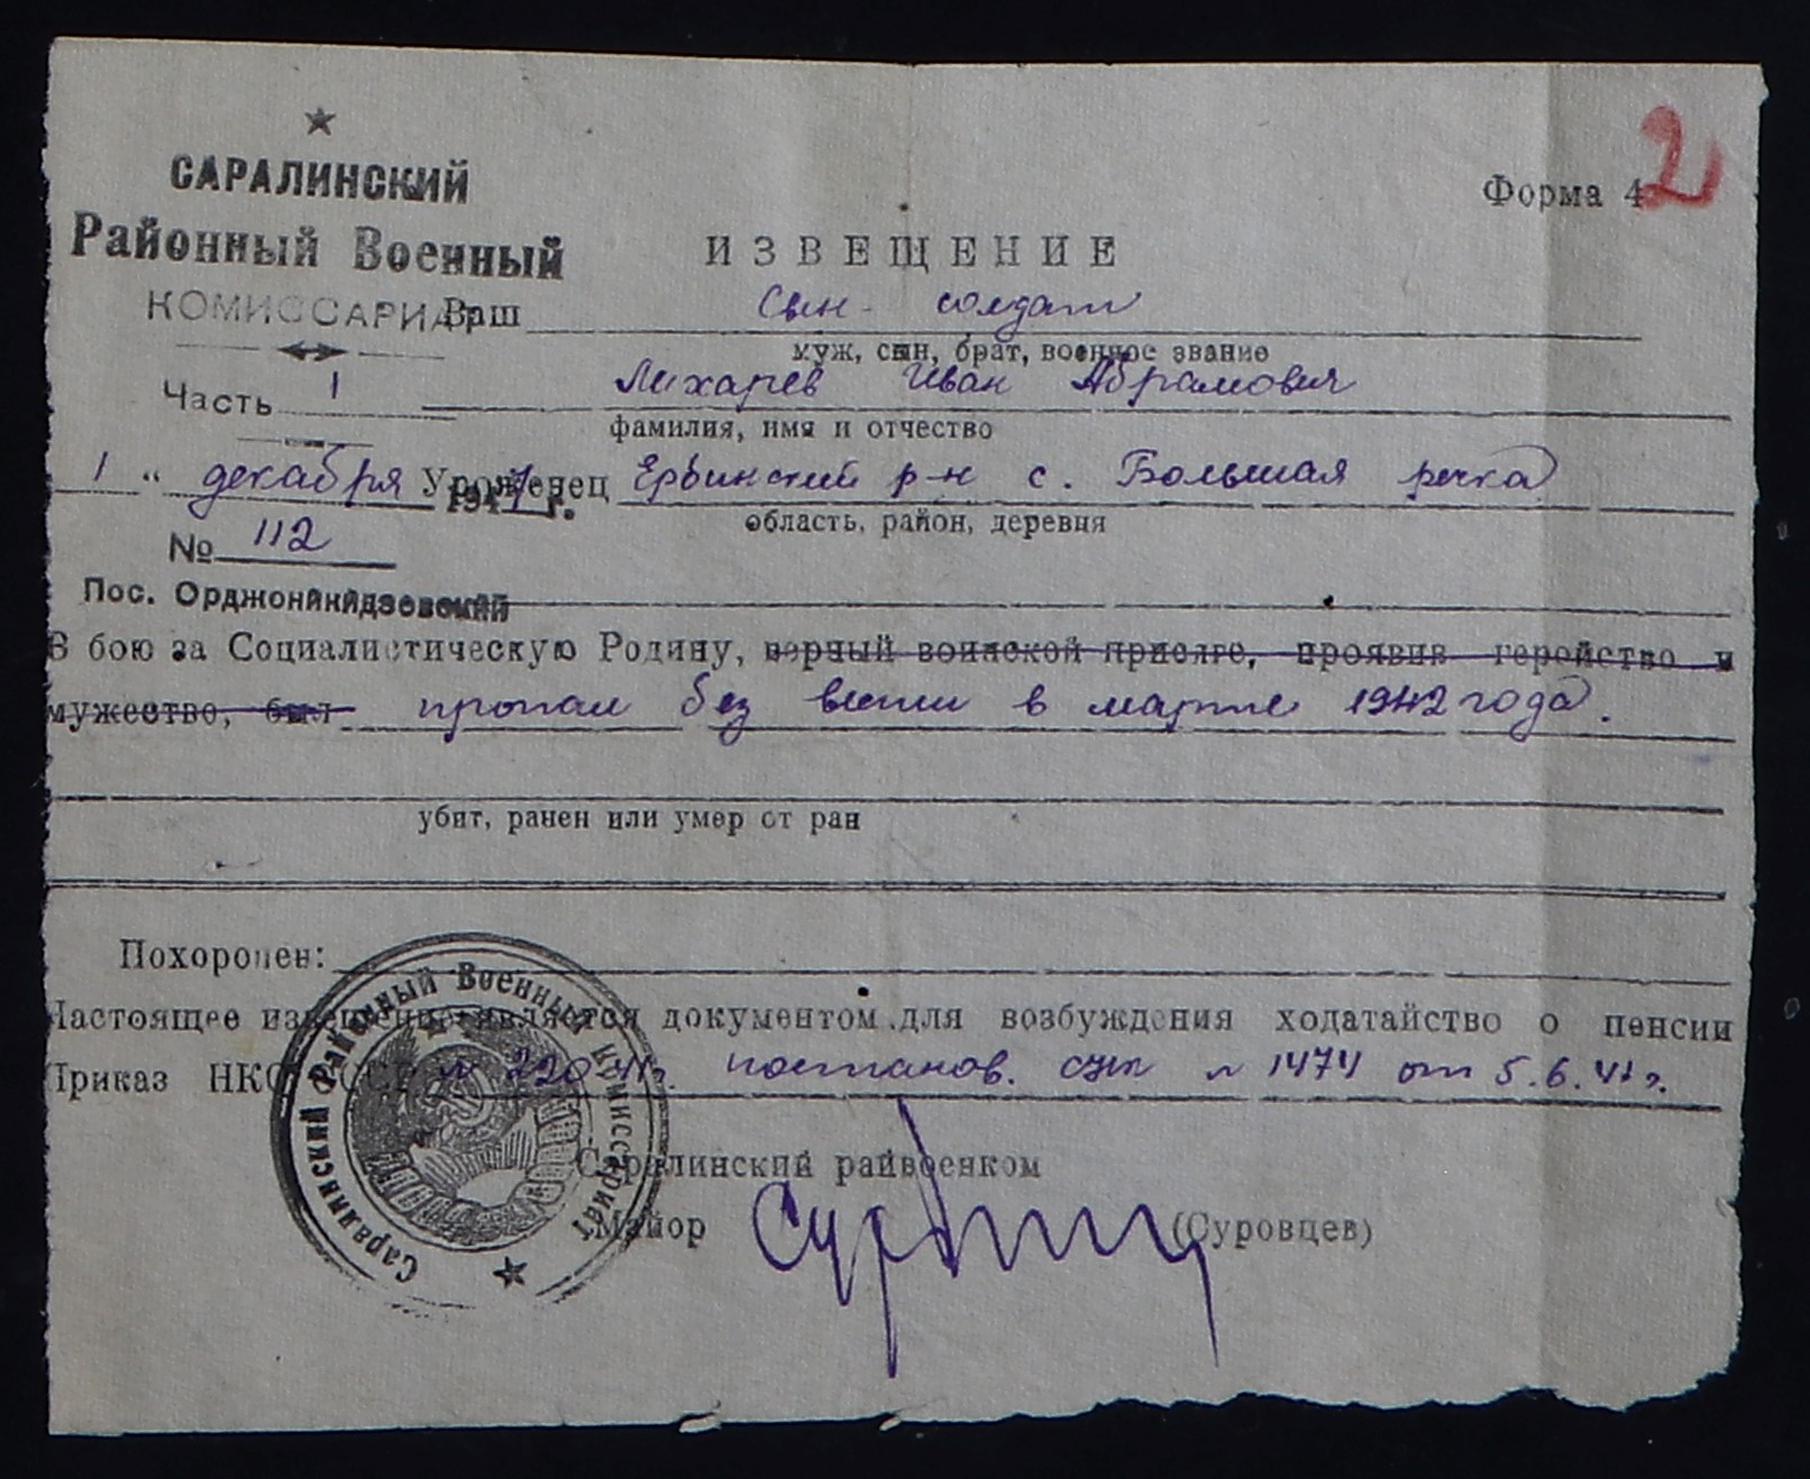 САРАЛИНСКИЙ
Районный Военный
КОМИССАРИАТ
Часть 1
1 " декабря 1947 г.
№ 112
Пос. Орджоникидзевский
Форма 4
2
ИЗВЕЩЕНИЕ
Ваш сын - солдат
муж, сын, брат, военное звание
Лихарев Иван Абрамович
фамилия, имя и отчество
Уроженец р-н с. Большая речка
область, район, деревня
В бою за Социалистическую Родину, верный воинской присяге, проявив геройство и
мужество, был пропал без вести в марте 1942 года.
убит, ранен или умер от ран
Похоронен:
Настоящее извещение является документом для возбуждения ходатайство о пенсии
Приказ НКО СССР № 220 41г. постанов. СНК № 1474 от 5.6.41 г.
Саралинский райвоенком
Майор (Суровцев)
Саралинский Районный Военный Комиссариат